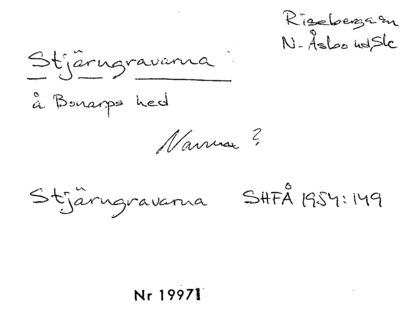 Riseberga sn
N. Åsbo hd, Sk
Stjärngravarna
å Bonarps hed
?
Stjärngravarna SHFÅ 1954:149
Nr 19971